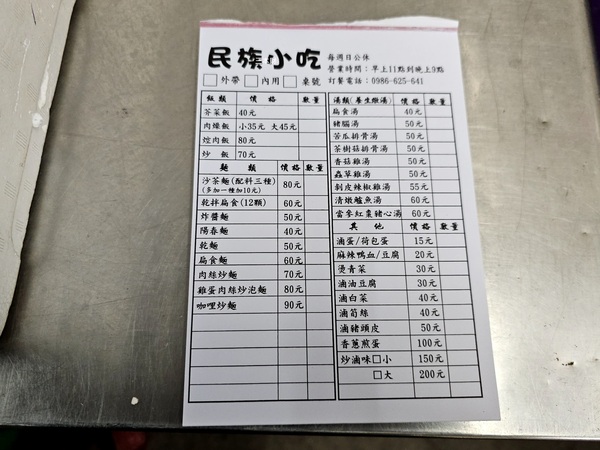 民族小吃
每週日公休
營業時間：早上11點到晚上9點
訂餐電話：0986-625-641
□外帶 □內用 □桌號
飯類 價格 數量
芥菜飯 40元
肉燥飯 小35元 大45元
焢肉飯 80元
炒飯 70元
麵類 價格 數量
沙茶麵(配料三種) 80元
(多加一種加10元)
乾拌扁食(12顆) 60元
炸醬麵 50元
陽春麵 40元
乾麵 50元
扁食麵 60元
肉絲炒麵 70元
雞蛋肉絲炒泡麵 80元
咖哩炒麵 90元
湯類(養生燉湯) 價格 數量
扁食湯 40元
豬腸湯 50元
苦瓜排骨湯 50元
茶樹菇排骨湯 50元
香菇雞湯 50元
蟲草雞湯 50元
剝皮辣椒雞湯 55元
清燉鱸魚湯 60元
當蔘紅棗豬心湯 60元
其他 價格 數量
滷蛋/荷包蛋 15元
麻辣鴨血/豆腐 20元
燙青菜 30元
滷油豆腐 30元
滷白菜 40元
滷筍絲 40元
滷豬頭皮 50元
香蔥煎蛋 100元
炒滷味□小 150元
□大 200元